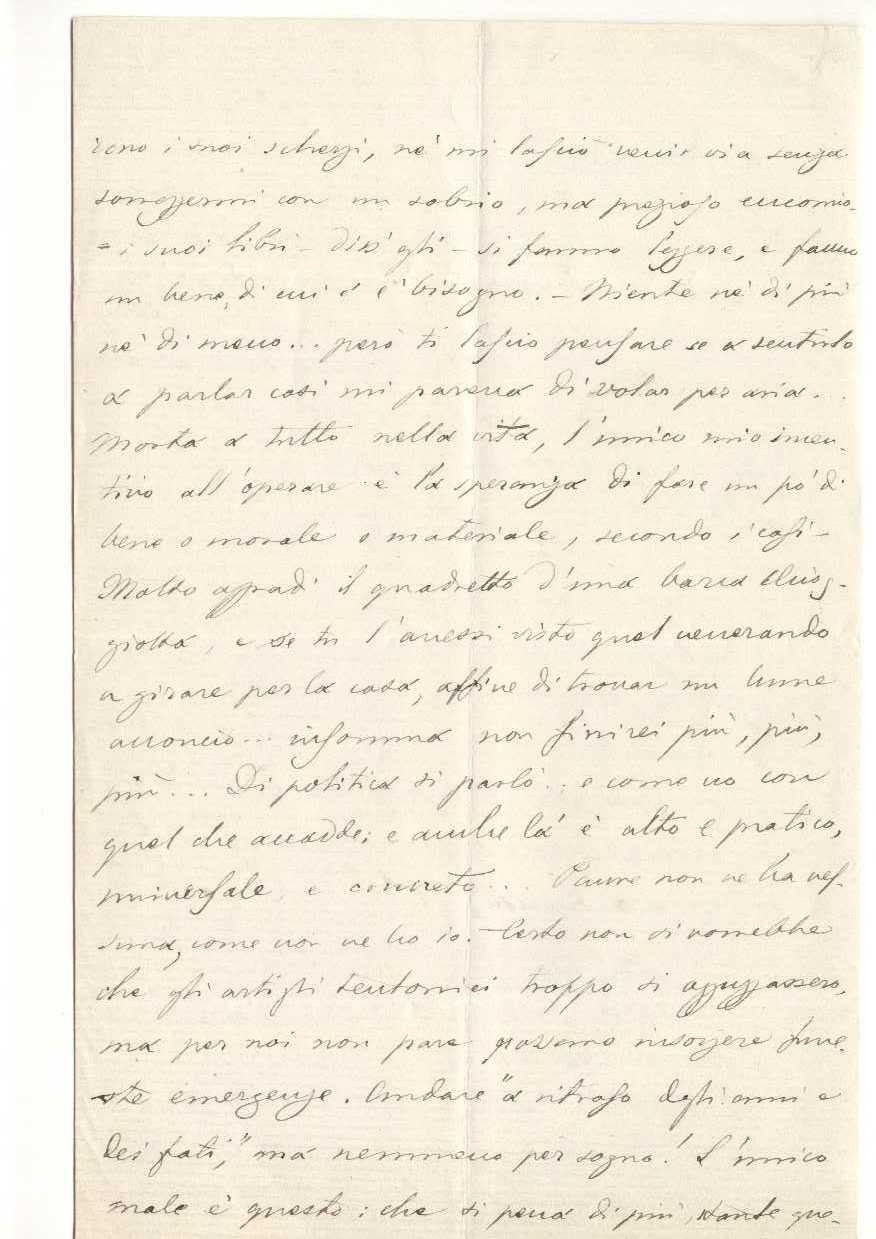 rono i suoi scherzi, nè mi lasciò venir via senza
sorreggermi con un sobrio, ma prezioso encomio.
= i suoi libri - diss'egli - si fanno leggere, e fanno
un bene, di cui c'è bisogno. - Niente nè di più
nè di meno... però ti lascio pensare se a sentirlo
a parlar così mi pareva di volar per aria...
Morta a tutto nella vita, l'unico mio incen-
tivo all'operare è la speranza di fare un pò di
bene o morale o materiale, secondo i casi -
Molto aggradì il quadretto d'una barca Chiog-
giotta, e se tu l'avessi visto quel venerando
a girare per la casa, affine di trovar un lume
acconcio... insomma non finirei più, più,
più... Di politica si parlò... e come no con
quel che accadde; e anche là è alto e pratico,
universale e concreto... Paure non ne ha nes-
suna, come non ne ho io. - Certo non si vorrebbe
che gli artigli teutonici troppo si aguzzassero,
ma per noi non pare possano insorgere fune-
ste emergenze. Andare "a ritroso degli anni e
dei fati," ma nemmeno per sogno! L'unico
male è questo: che si pena di più, stante que-